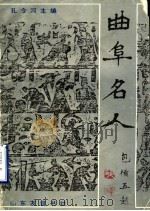 孔令河主编
曲阜名人
包備五题
山东